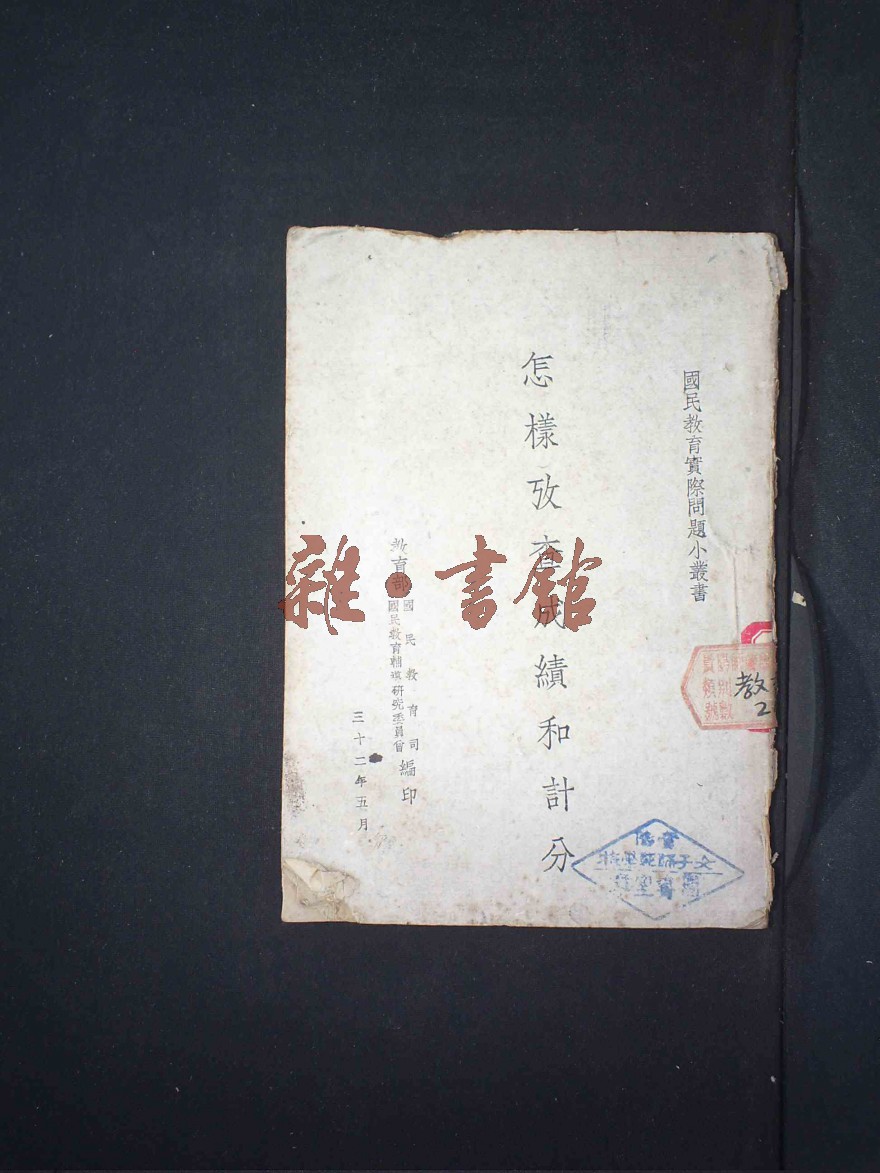 國民教育實際問題小叢書
怎樣攷查成績和計分
教育部
國民教育司
國民教育輔導研究委員會
編印
三十二年五月
雜·書館
教
2